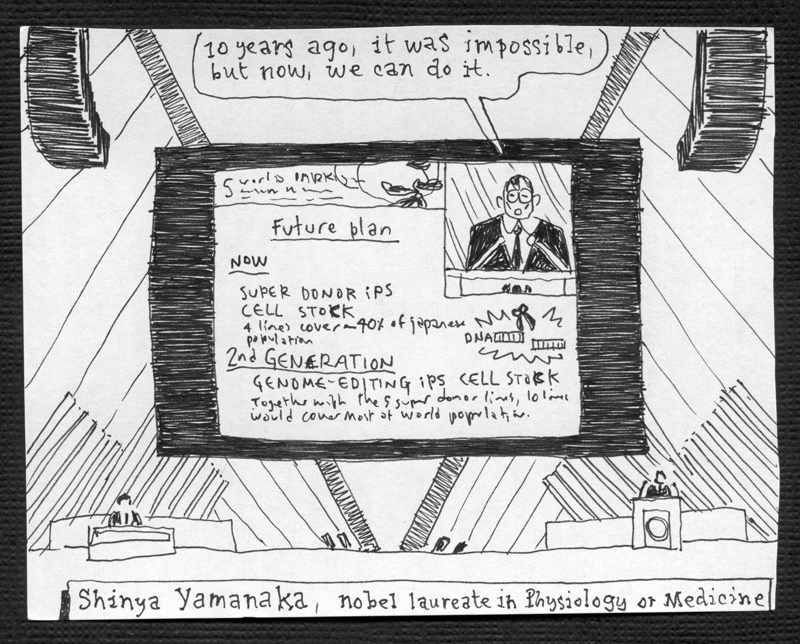 10 years ago, it was impossible,
but now, we can do it.
5 world
Future plan
NOW
SUPER DONOR iPS
CELL STOCK
4 lines cover ~40% of japanese
population
DNA
2nd GENERATION
GENOME-EDITING iPS CELL STOCK
Together with the 5 super donor lines, 10 lines
would cover most of world population.
Shinya Yamanaka, nobel laureate in Physiology or Medicine